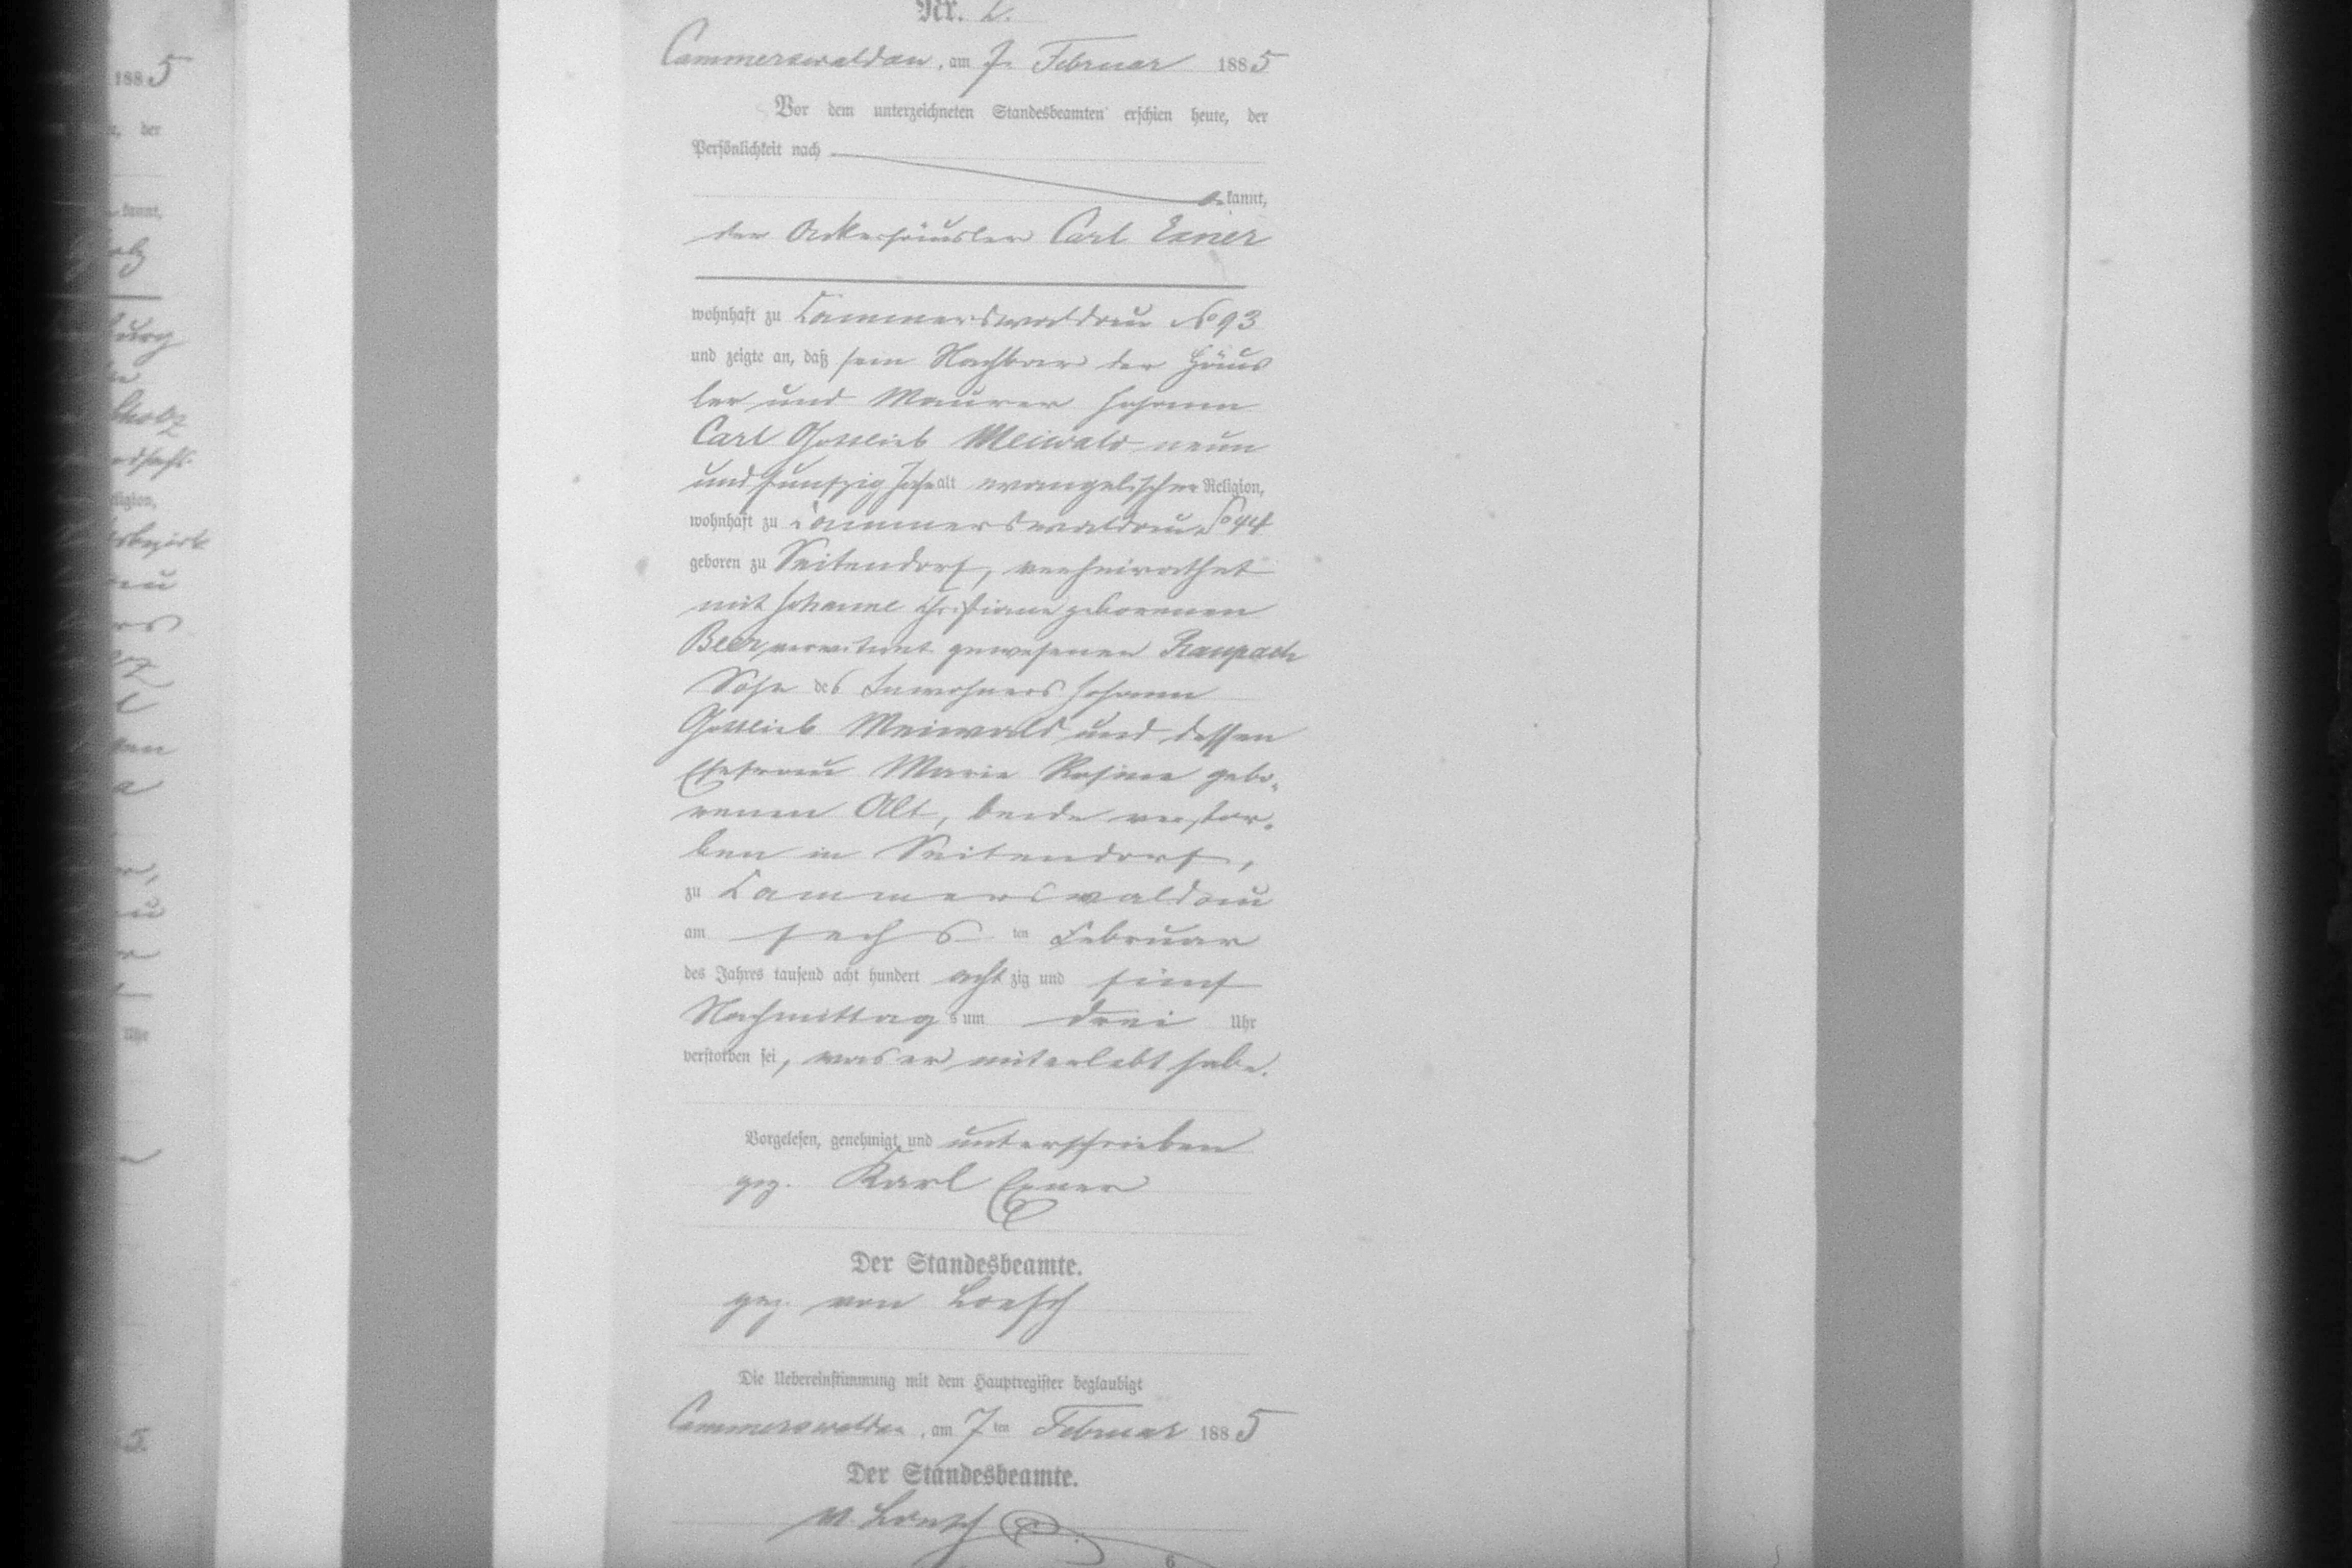 Nr.
Cammerswaldau, am 7. Februar 1885
Vor dem unterzeichneten Standesbeamten erschien heute, der
Persönlichkeit nach
kannt,
der Ackerhäusler Carl Exner
wohnhaft zu Cammerswaldau No 93
und zeigte an, daß sein Nachbar der Häus
ler und Maurer Johann
Carl Gottlieb Meiwald neun
und fünfzig Jahr alt evangelischer Religion,
wohnhaft zu Cammerswaldau No 44
geboren zu Seitendorf, verheirathet
mit Johanne Christiane geborenen
Beer, verwitwet gewesenen Raupach
Sohn des Inwohners Johann
Gottlieb Meiwald und dessen
Ehefrau Marie Rosine gebo-
renen Alt, beide verstor-
ben in Seitendorf,
zu Cammerswaldau
am sechsten Februar
des Jahres tausend acht hundert achtzig und fünf
Nachmittags um drei Uhr
verstorben sei, was er miterlebt habe.
Vorgelesen, genehmigt und unterschrieben
gez. Karl Exner
Der Standesbeamte.
gez. von Loesch
Die Uebereinstimmung mit dem Hauptregister beglaubigt
Cammerswaldau, am 7ten Februar 1885
Der Standesbeamte.
v. Loesch
6